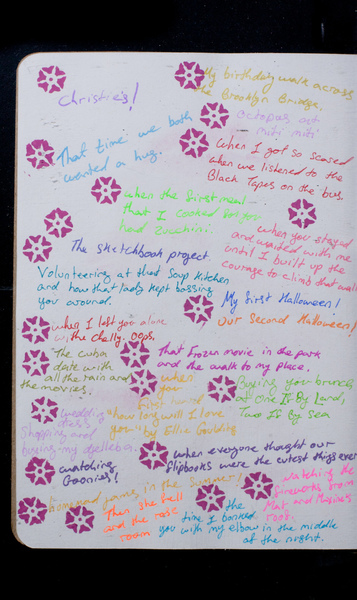 Christie's!
My birthday walk across
the Brooklyn Bridge.
Octopus at
miti miti
That time we both
wanted a hug.
When I got so scared
when we listened to the
Black Tapes on the bus.
When the first meal
that I cooked for you
had zucchini.
when you stayed
and waited with me
until I built up the
courage to climb that wall
The sketchbook project
Volunteering at that Soup Kitchen
and how that lady kept bossing
you around.
My first Halloween!
Our Second Halloween!
when I left you alone
with the chelly. Oops.
The Cuba
date with
all the rain and
the movies.
That Frozen movie in the park
and the walk to my place.
when
you
first
"how long will I love
you" by Ellie Goulding
Buying you brunch
at One If By Land,
Two If By Sea
wedding
dress
Shopping and
buying my
when everyone thought our
flipbooks were the cutest things ever
watching
Goonies!
in the Summer!
Then she fell
and the rose
room
Watching the
fireworks from
Mat and
roof.
the
time I bonked
you with my elbow in the middle
of the night.